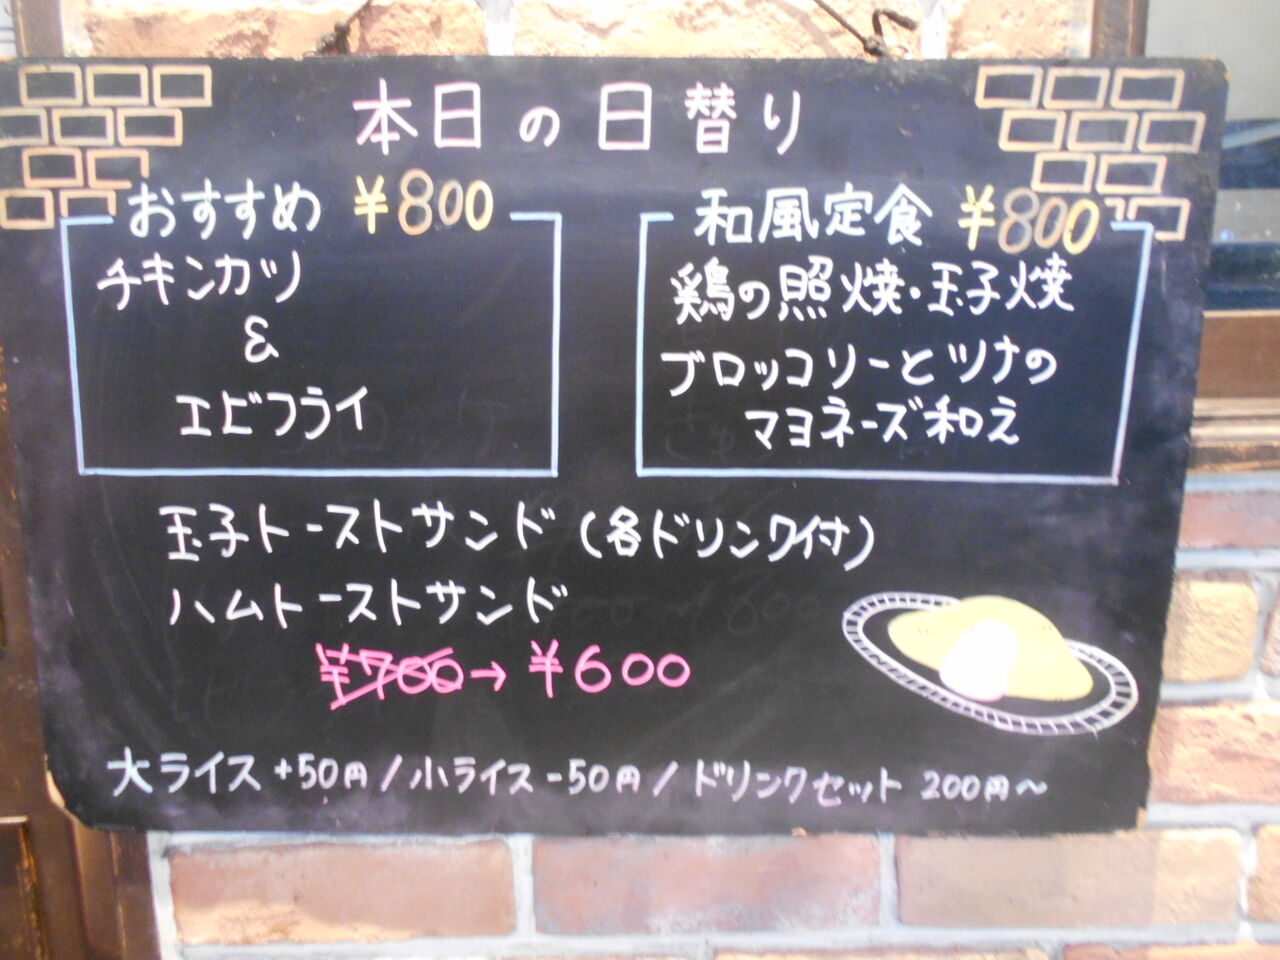 本日の日替り
おすすめ ¥800
チキンカツ
&
エビフライ
和風定食 ¥800
鶏の照焼・玉子焼
ブロッコリーとツナの
マヨネーズ和え
玉子トーストサンド(各ドリンク付)
ハムトーストサンド
¥700→¥600
大ライス+50円/小ライス-50円/ドリンクセット 200円〜